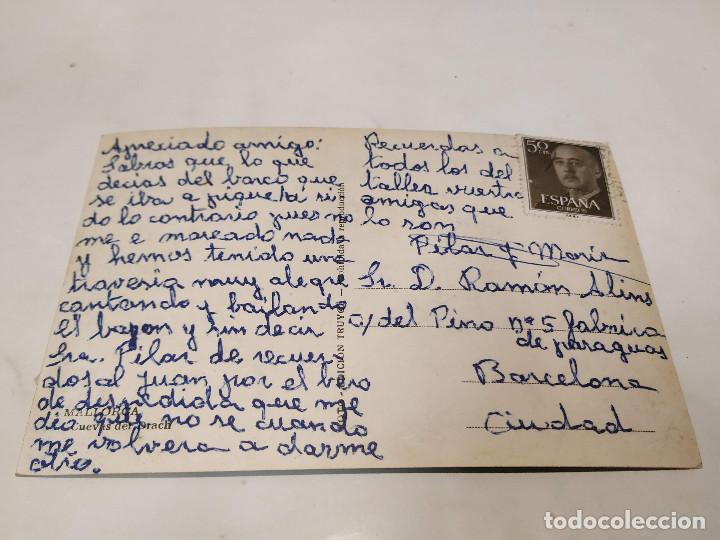 Apreciado amigo:
Sabras que lo que
decias del barco que
se iba a pique ha si
do lo contrario pues no
me e mareado nada
y hemos tenido una
travesia muy alegre
cantando y bailando
el bayon y sin decir
Sra. Pilar de recuer
dos al Juan por el beso
de despedida que me
dio que no se cuando
me volvera a darme
otro.
MALLORCA
Cuevas del Drach
FOTO-EDICIÓN TRUYOL - Prohibida la reproducción
Recuerdos a
todos los del
taller vuestra
amigas que
lo son
Pilar y Maria
50
CTS
ESPAÑA
CORREOS
Sr. D. Ramón Alins
c/ del Pino nº 5 fabrica
de paraguas
Barcelona
Ciudad
todocoleccion.net